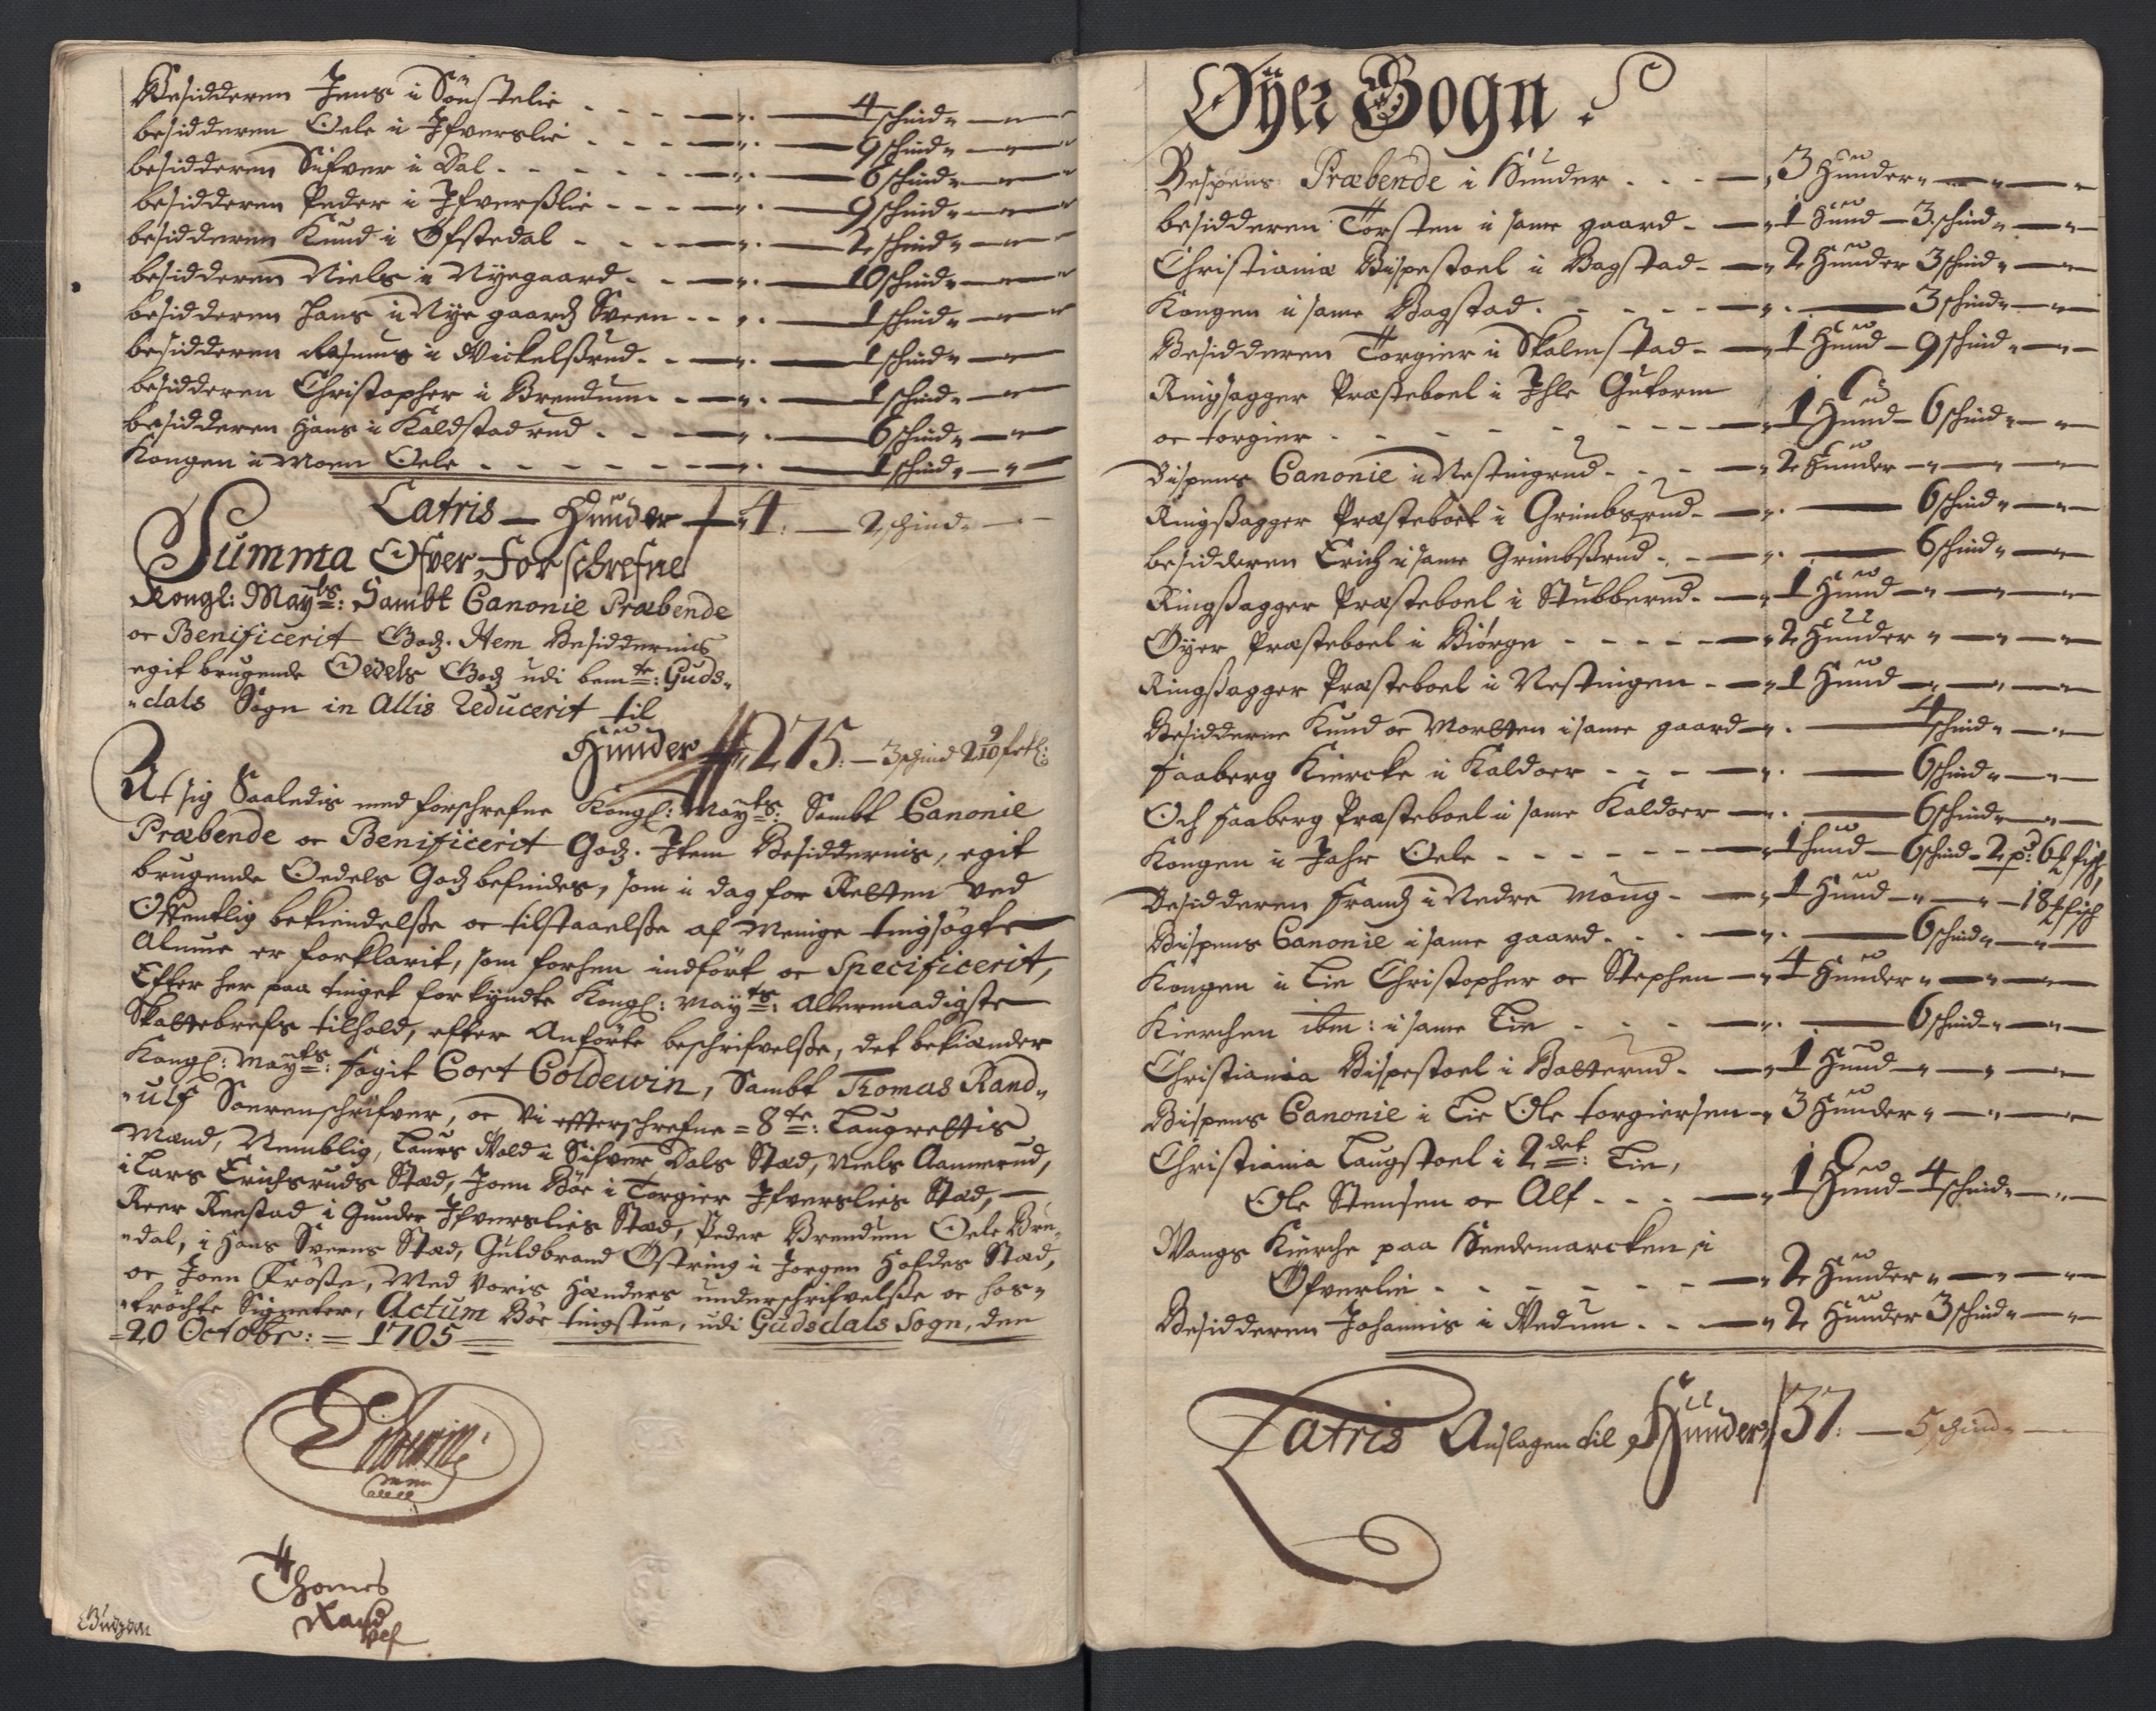 Besidderen Jens i Sønstelie - - - 4 schind
besidderen Oele i Ifverslie - - - 9 schind
besidderen Sifver i Dal - - - 6 schind
besidderen Peder i Ifversslie - - - 9 schind
besidderen Knud i Ofstedal - - - 2 schind
besidderen Niels i Nyegaard - - - 10 schind
besidderen Hans i Nye gaards Sveen - - - 1 schind
besidderen Rasmus i Vickelssrud - - - 1 schind
besidderen Christopher i Brendum - - - 1 schind
besidderen Hans i Kaldstadrud - - - 6 schind
Kongen i Moen Oele - - - 1 schind
Latris — Hunder 4: — 2 schind
Summa Ofver forschrefne
Kongl: Mayts: Sambt Canonie Præbende
oc Benificerit Godz. Item Besiddernis
egit brugende Oedels Godz udi bemte: Guds-
dals Sogn in Allis Reducerit til
Hunder 275. — 3 schind 2 9/10
At sig Saaledis med forschrefne Kongl: Mayts: Sambt Canonie
Præbende oc Benificerit Godz. Item Besiddernis, egit
brugende Oedels Godz befindes, som i dag for Retten ved
Offentlig bekiendelsse oc tilstaaelsse af Menige tingsøgte
Almue er forklarit, som forhen indført oc Specificerit,
Efter her paa tinget forkyndte Kongl: Mayts: Allernaadigste
Skattebrefs tilhold, efter Anførte beschrifvelsse, det bekiender
Kongl: Mayts: fogit Cort Coldewin, Sambt Thomas Rand-
ulf Sorenschrifver, oc Vi effterschrefne = 8te: Laugrettis
Mænd, Nemblig, Laurs Vold i Sifver Dals Stæd, Niels Aannerud,
i Lars Erichsruds Stæd, Joen Bøe i Torgier Ifverslies Stæd, —
Reer Reestad i Gunder Ifverslies Stæd, Peder Brendum Oele Bre-
dal, i Hans Sveens Stæd, Guldbrand Østring i Jorgen Hofdes Stæd,
oc Joen Krøsse, Med Voris Hænders underschrifvelsse oc hos-
trøchte Signeter, Actum Bøe tingstue, udi Gudsdals Sogn, den
20 Octobr: = 1705
Thomes
Randulf
Øyer Sogn
Bispens Præbende i Hunder - - - 3 Hunder
besidderen Torsten i same gaard - 1 Hund — 3 schind
Christiania Bispestoel i Bagstad - 2 Hunder 3 schind
Kongen i same Bagstad - - - 3 schind
Besidderen Torgier i Skalmstad - 1 Hund — 9 schind
Ringsagger Præsteboel i Ihle Gutorm
oc torgier - - - 1 Hund — 6 schind
Bispens Canonie i Nestingrud - - - 2 Hunder
Ringssagger Præsteboel i Grimbsrud - 6 schind
besidderen Erich i same Grimbssrud - - 6 schind
Ringssagger Præsteboel i Stubberud - 1 Hund
Øyer Præsteboel i Biørge - - - 2 Hunder
Ringssagger Præsteboel i Nestingen - 1 Hund
Besidderne Knud oc Mortten i same gaard - 4 schind
Faaberg Kiercke i Kaldoer - - - 6 schind
Och Faaberg Præsteboel i same Kaldoer - 6 schind
Kongen i Jahr Oele - - - 1 hund — 6 schind — 2 pd: 6 fisch
Besidderen Frandz i Nedre Moug - 1 Hund — 18 fisch
Bispens Canonie i same gaard - - 6 schind
Kongen i Lie Christopher oc Stephen - 4 Hunder
Kierchen ibm: i same Lie - - - 6 schind
Christiania Bispestoel i Batterud - 1 Hund
Bispens Canonie i Lie Ole torgiersen - 3 Hunder
Christiania Laugstoel i 2det: Lie,
Ole Stensen oc Alf - - - 1 Hund — 4 schind
Vangs Kierche paa Heedemarcken, i
Øfverlie - - - 2 Hunder
Besidderen Johannis i Vedum - - 2 Hunder 3 schind
Latris Anslagen til Hunder 37: — 5 schind